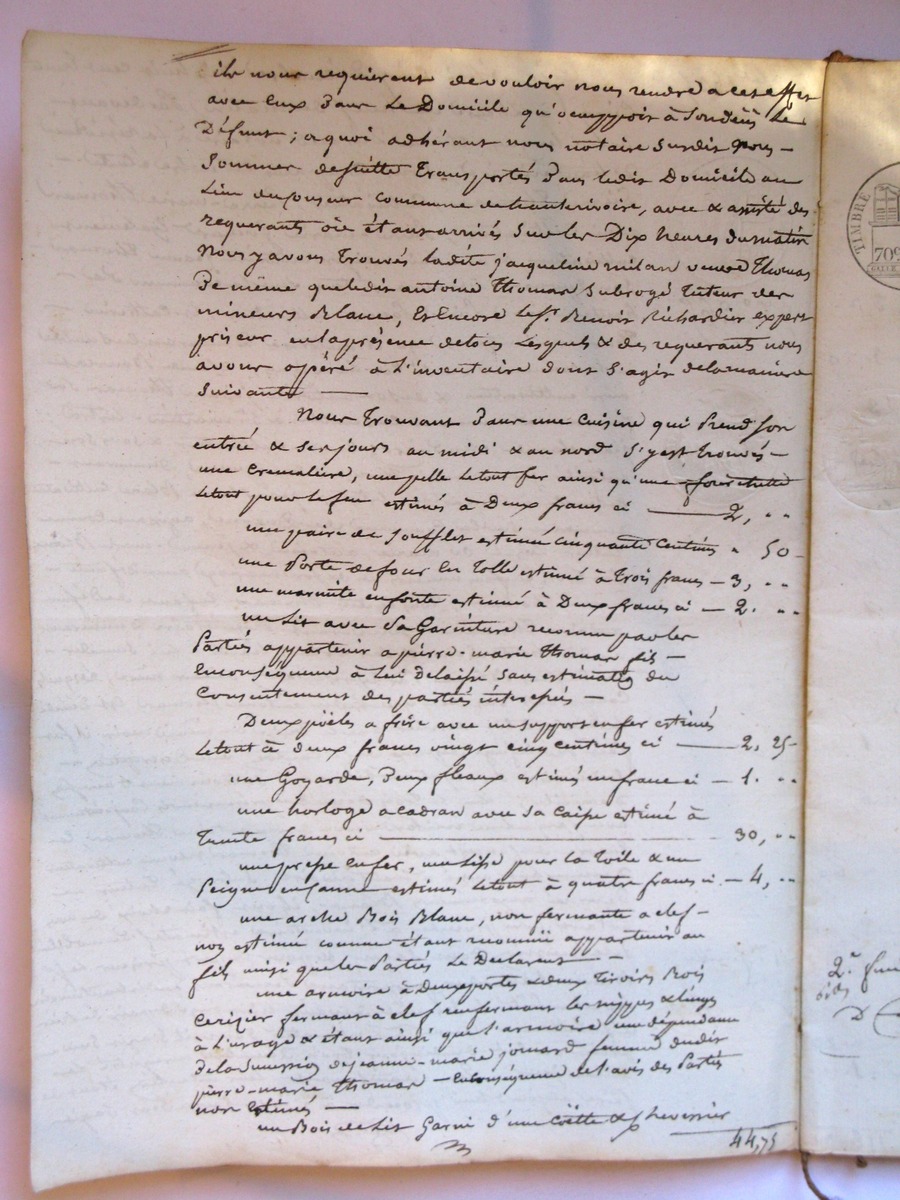 ils nous requierent de vouloir nous rendre a cet effet
avec Eux Dans Le Domicile qu'occuppoit à Le
Défunt ; a quoi adhérant nous notaire Susdit Nous
Sommes de Suitte Transportés Dans ledit Domicile au
Lieu du commune de hauterivoire, avec & assisté des
requerants où étant arrivés Sur les Dix heures du matin
Nous y avons Trouvés ladite jacqueline milan veuve Thomas
De même que ledit antoine Thomas Subrogé Tuteur des
mineurs Blanc, Et Encore le Sr. Benoit Richardier expert
priseur en la présence de tous Lesquels & des requerants nous
avons opéré à L'inventaire dont S'agit de la maniere
Suivante —
Nous Trouvant Dans une Cuisine qui Prend Son
entrée & ses jours au midi & au nord S'y est trouvés —
une Cremaliere, une pelle Le tout fer ainsi qu'une fourchette
Le tout pour le feu estimés à Deux francs ci — 2, " "
une paire de Soufflet estimée cinquante Centimes " 50 –
une Porte de four En Tolle estimé à Trois francs – 3, " "
une marmite en fonte estimée à Deux francs ci – 2. " "
un Lit avec Sa Garniture reconnu par les
Parties appartenir a pierre-marie Thomas fils –
En conséquence à Lui Delaissé Sans estimation du
Consentement des parties interessés –
Deux pöeles a frire avec un support en fer estimés
Le tout à deux francs vingt cinq centimes ci — 2, 25 –
une Goyarde, Deux fleaux estimés un franc ci – 1. " "
une horloge a cadran avec Sa Caisse estimé à
Trente francs ci — 30, " "
une presse En fer, une Lisse pour la Toile & un
Peigne estimés Le tout à quatre francs ci – 4, " "
une arche Bois Blanc, non fermante a clef –
non estimée comme étant reconnüe appartenir au
fils ainsi que les Parties Le Declarent –
une armoire à Deux portes & deux Tiroirs Bois
Cerizier fermant à clef renfermant les nippes & linges
à L'usage & étant ainsi que l'armoire une dépendance
de la Succession de jeanne-marie joinard femme dudit
pierre-marie Thomas – En conséquence de l'avis des Parties
non Estimés —
un Bois de Lit Garni d'une Coëtte &
44,75
TIMBRE
70
2.e